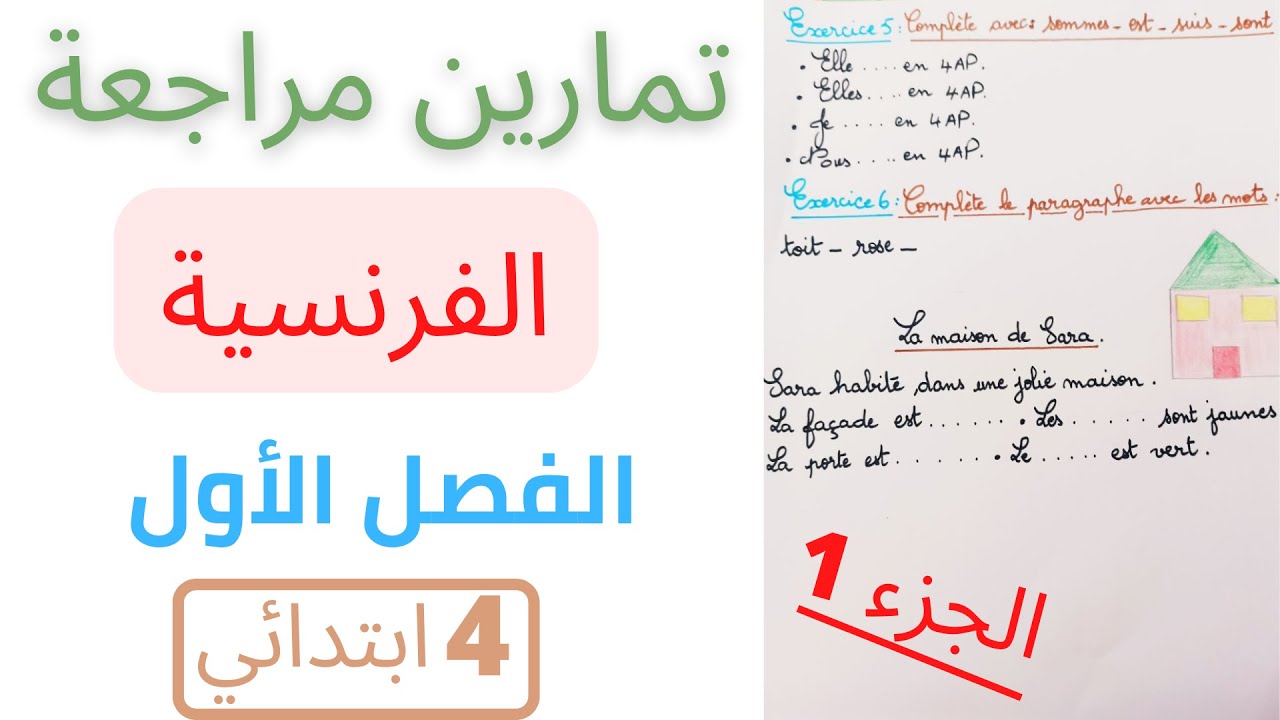 تمارين مراجعة
الفرنسية
الفصل الأول
4 ابتدائي
Exercice 5 : Complète avec: sommes - est - suis - sont
• Elle .... en 4AP.
• Elles .... en 4AP.
• Je .... en 4AP.
• Nous .... en 4AP.
Exercice 6 : Complète le paragraphe avec les mots :
toit - rose -
La maison de Sara.
Sara habite dans une jolie maison.
La façade est ...... . Les ...... sont jaunes
La porte est ...... . Le ..... est vert.
الجزء 1